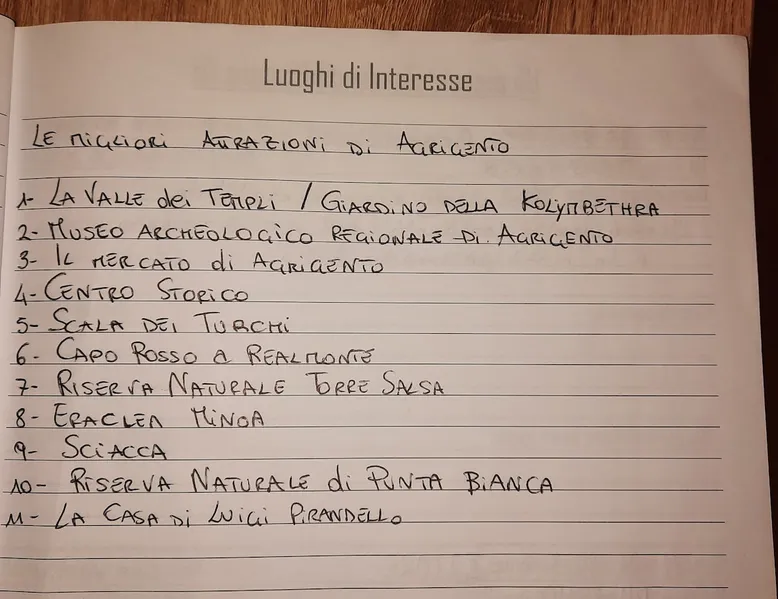 Luoghi di Interesse
LE MIGLIORI ATTRAZIONI DI AGRIGENTO
1- LA VALLE dei TEMPLI / GIARDINO DELLA KOLYMBETHRA
2- MUSEO ARCHEOLOGICO REGIONALE DI AGRIGENTO
3- IL MERCATO di AGRIGENTO
4- CENTRO STORICO
5- SCALA DEI TURCHI
6- CAPO ROSSO A REALMONTE
7- RISERVA NATURALE TORRE SALSA
8- ERACLEA MINOA
9- SCIACCA
10- RISERVA NATURALE di PUNTA BIANCA
11- LA CASA DI LUIGI PIRANDELLO